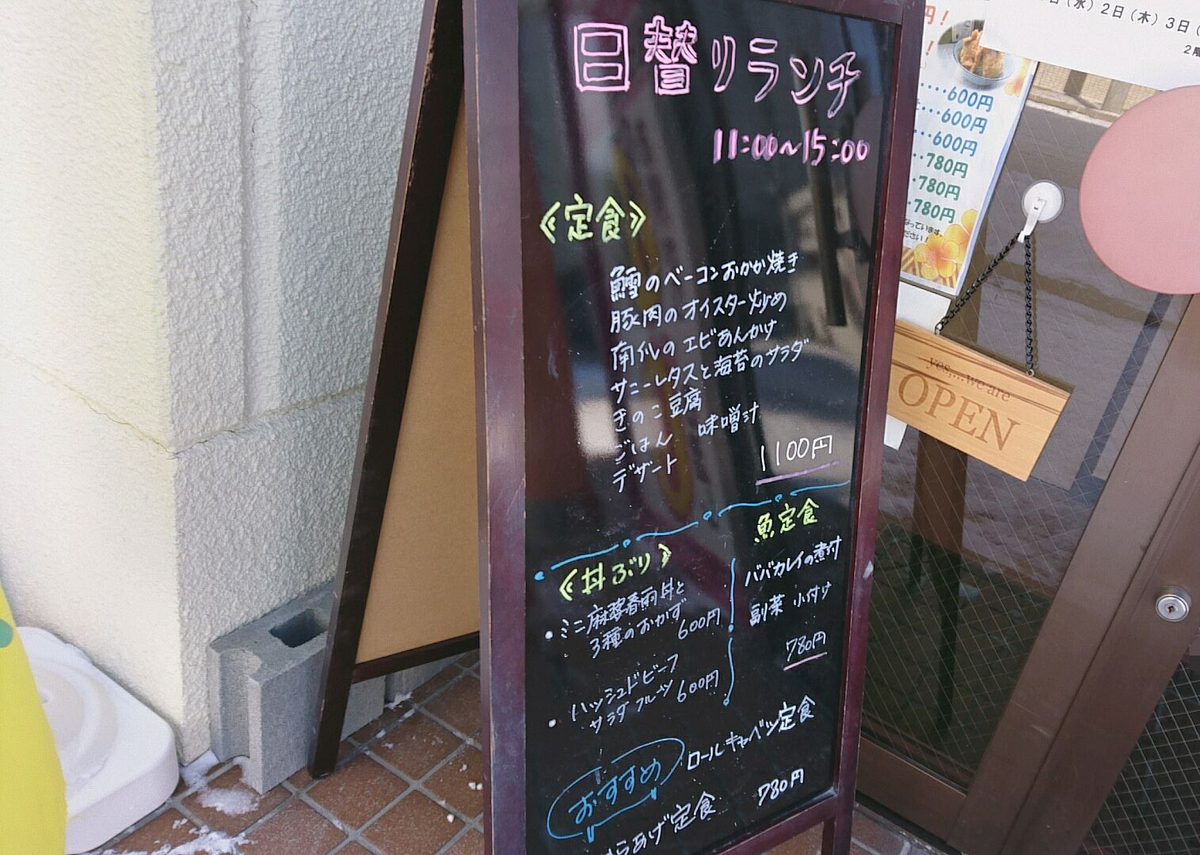 日替りランチ
11:00~15:00
《定食》
鱈のベーコンおかか焼き
豚肉のオイスター炒め
南瓜のエビあんかけ
サニーレタスと海苔のサラダ
きのこ豆腐
ごはん 味噌汁
デザート
1100円
《丼ぶり》
・ミニ麻婆春雨丼と
3種のおかず
600円
・ハッシュドビーフ
サラダ フルーツ 600円
魚定食
ババカレイの煮付
副菜 小付け
780円
おすすめ
ロールキャベツ定食
780円
らあげ定食
・・・・600円
・・・600円
・・・600円
・・780円
・780円
・780円
2日(木) 3日
yes,...we are
OPEN